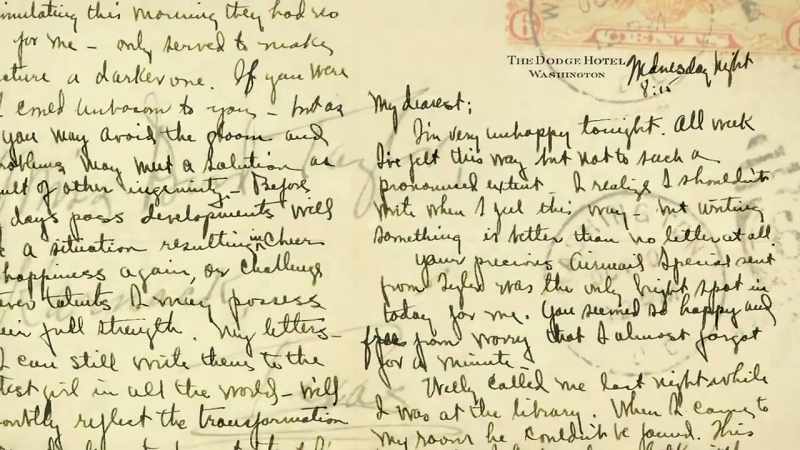 imulating this morning they had no
for me – only served to make
cture a darker one. If you were
I could unbosom to you – but as
you may avoid the gloom and
problems may meet a solution as
ult of other ingenuity. Before
days pass developments will
a situation resulting in cheer
happiness again, or challenge
ever talents I may possess
eir full strength. My letters –
I can still write them to the
test girl in all the world – will
oubtly reflect the transformation
THE DODGE HOTEL
WASHINGTON
Wednesday night
8:15
My dearest;
I'm very unhappy tonight. All week
I've felt this way but not to such a
pronounced extent. I realize I shouldn't
write when I feel this way – but writing
something is better than no letter at all.
Your precious Airmail Special sent
from Tyler was the only bright spot in
today for me. You seemed so happy and
free from worry that I almost forgot
for a minute.
Welly called me last night while
I was at the library. When I came to
my room he couldn't be found. This